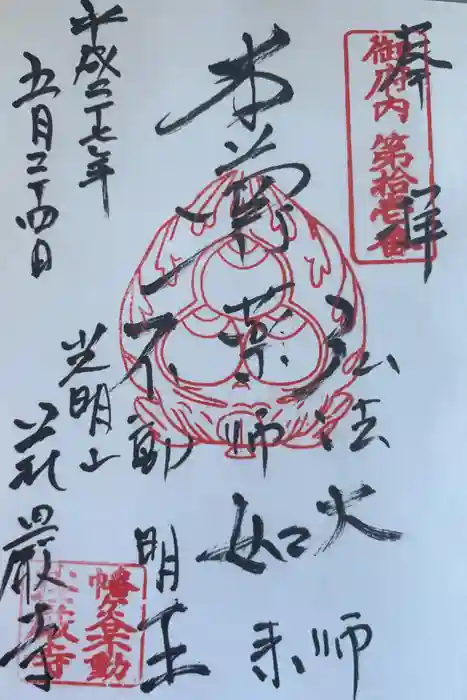 奉拝
御府内 第拾壱番
弘法大師
本尊薬師如来
不動明王
光明山
荘嚴寺
幡ヶ谷不動
荘嚴寺
平成二十七年
五月二十四日